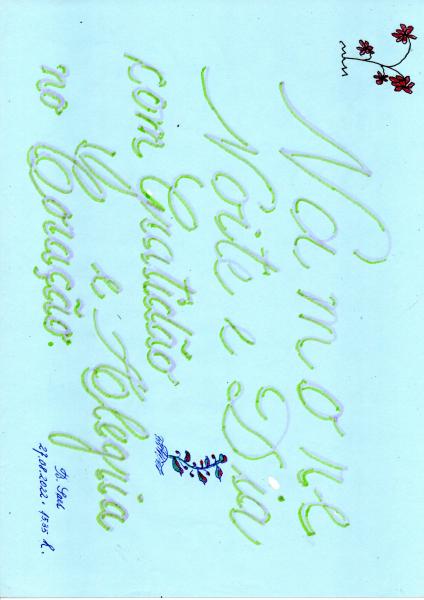 Namore
Noite e Dia
com Gratidão
e Alegria
no Coração.
27.08.2022. 15:35 h.